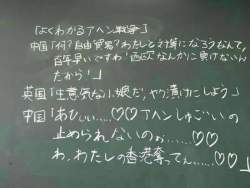 「よくわかるアヘン戦争」
中国「何?自由貿易?わたしと対等になろうなんて、
百年早いですわ!西欧なんかに負けないん
だから!」
英国「生意気な小娘だ、ヤク漬けにしよう」
中国「あひぃぃ……♡♡アヘンしゅごいの
止められないのぉ……♡♡
わ、わたしの香港奪ってぇ……♡♡」